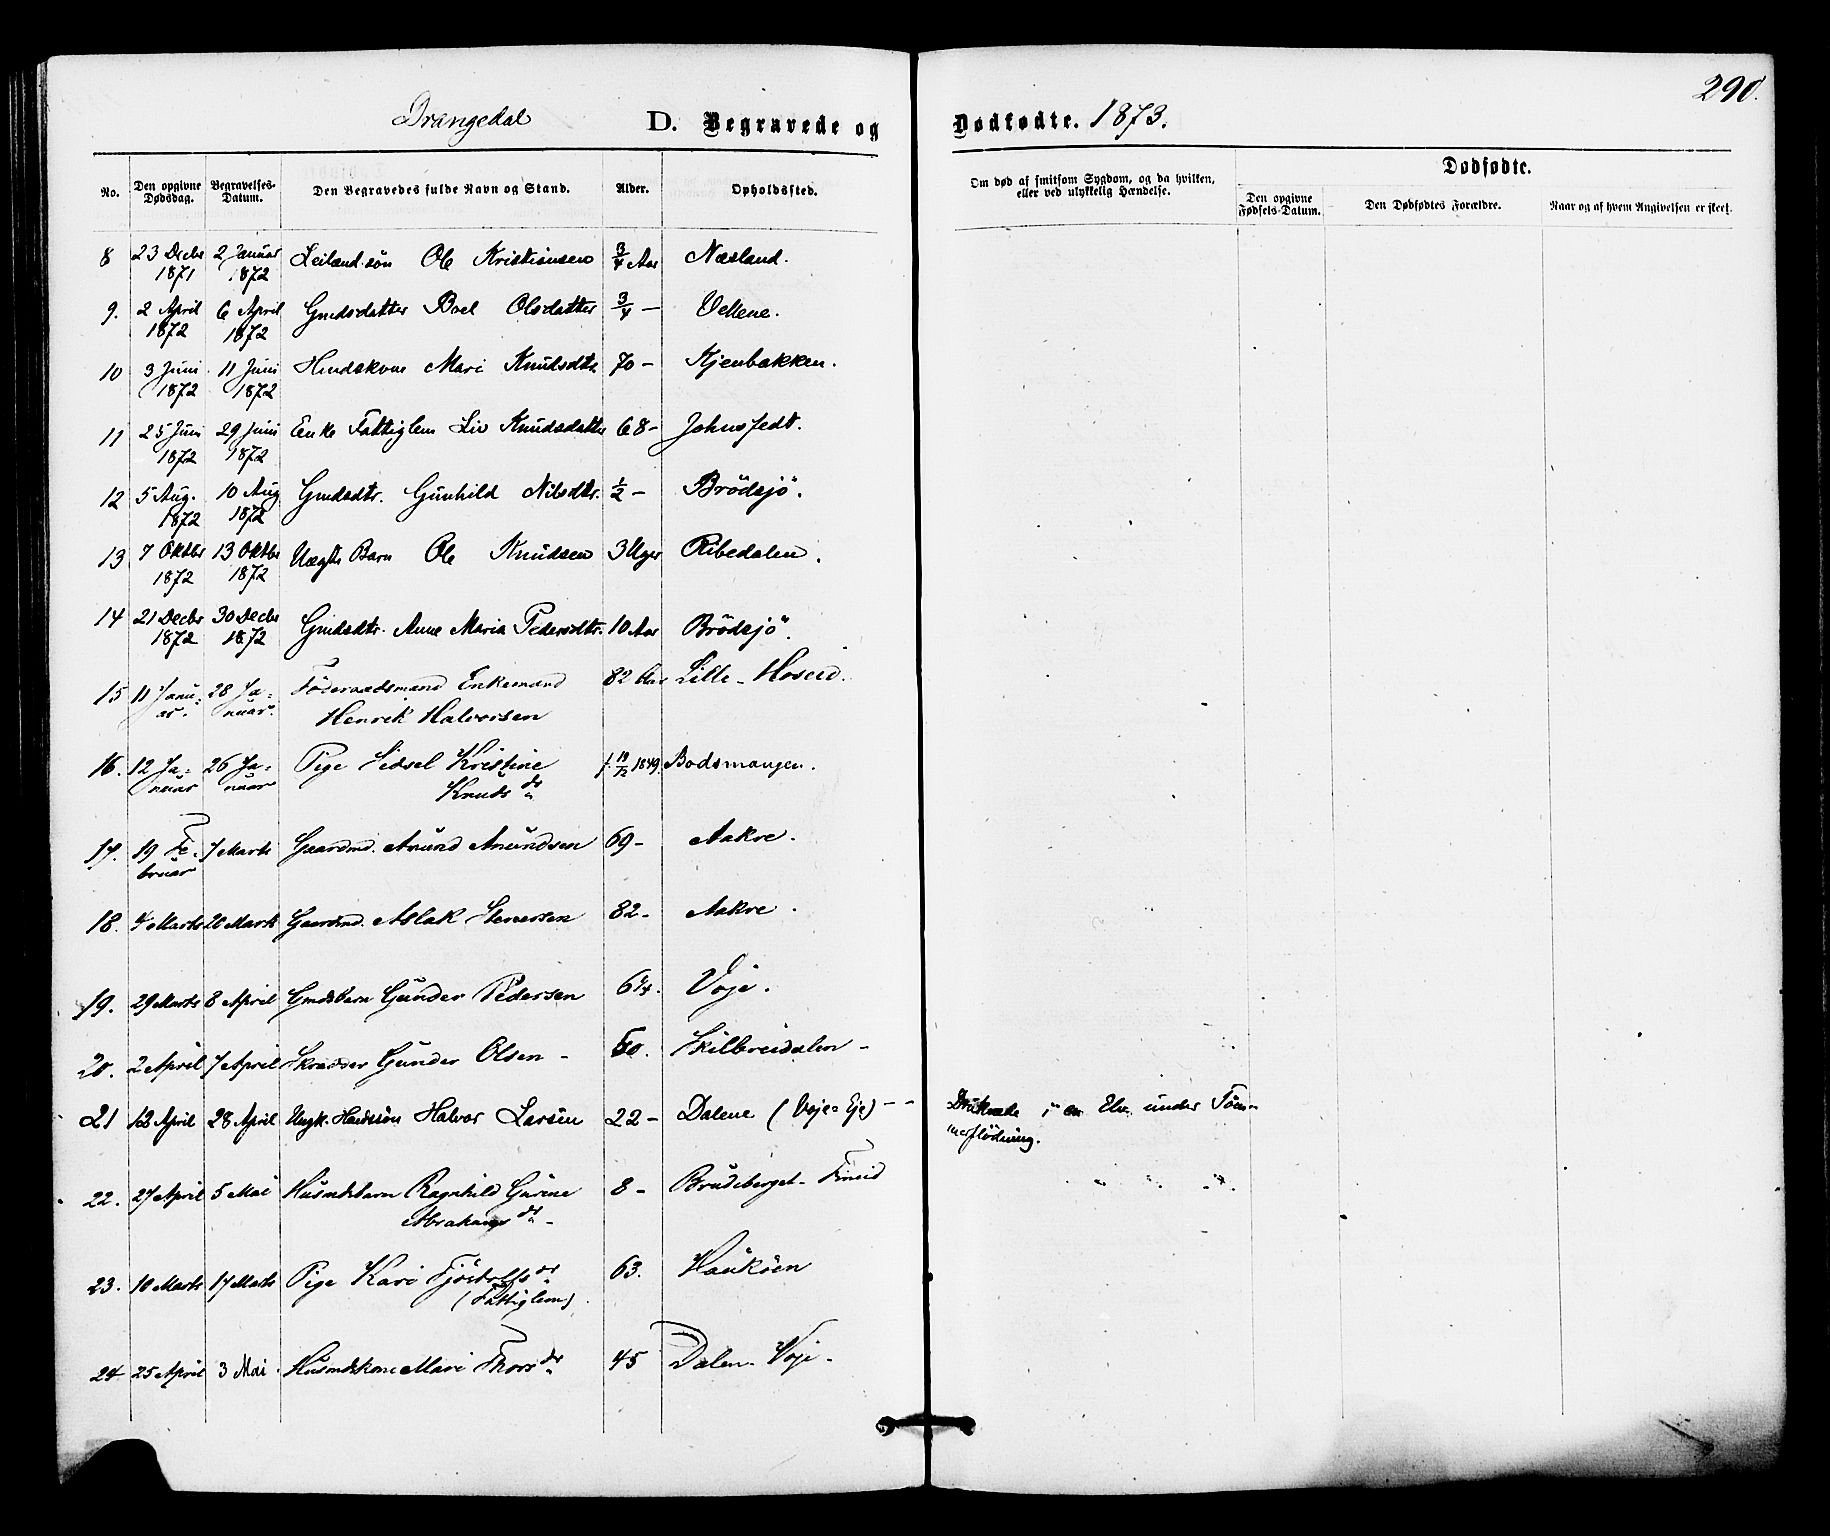 290.
Drangedal D. Begravede og Dødfødte. 1873.
No. Den opgivne Dødsdag. Begravelses-Datum. Den Begravedes fulde Navn og Stand. Alder. Opholdssted. Om død af smitsom Sygdom, og da hvilken, eller ved ulykkelig Hændelse. Dødfødte.
Den opgivne Fødsels-Datum. Den Dødfødtes Forældre. Naar og af hvem Angivelsen er skeet.
8 23 Decbr 2 Januar Leilænd.sön Ole Kristiansen 3/4 Aar Næsland.
1871 1872
9. 2 April 6 April Gmdsdatter Boel Olsdatter 3/4 — Vellene.
1872 1872
10 3 Juni 11 Juni Mari Knudsdtr 70 — Kjenbakken.
1872 1872
11 25 Juni 29 Juni Enke Fattiglem Liv Knudsdatter 68 —
1872 1872
12 5 Aug. 10 Aug Gmdsdtr. Gunhild Nilsdtr. 1/2 — Brödsjö.
1872 1872
13 7 Oktbr 13 Oktbr Uægte Barn Ole Knudsen 3 Uger Ribedalen.
1872 1872
14 21 Decbr 30 Decbr Gmdsdtr. Anne Maria Pedersdtr. 10 Aar Brödsjö.
1872 1872
15 11 Janu- 28 Ja- Föderaadsmand Enkemand 82 Aar Lille-Hoseid.
ar. nuar. Henrik Halvorsen
16. 12 Ja- 26 Ja- Pige Sidsel Kristine f. 19/12 1849. Bodsmangen.
nuar nuar Knudsdr
17. 19 Fe- 7 Marts Gaardmd. Anund Anundsen 69 — Aakre.
bruar
18. 4 Marts Marts Gaardmd. Aslak Stenersen 82 — Aakre.
19. 29 Marts 8 April Gmdsbarn Gunder Pedersen Voje.
20. 2 April 7 April Skrædder Gunder Olsen — Skilbreidalen —
21 12 April 28 April Ungk. Halvor Larsen 22 — Dalene (Voje-Eje) — — Druknede i en Elv under Töm-
merflödning.
22. 27 April 5 Mai Husmdsbarn Ragnhild Gurine 8 — Brudeberget - Fineid " " "
Abrahamsdr —
23. 10 Marts 17 Marts Pige Kari Tjöstolfsdr 63. Hauköen
(Fattiglem).
24 25 April 3 Mai Husmdskone Mari Thorsdr 45 Dalen - Voje —